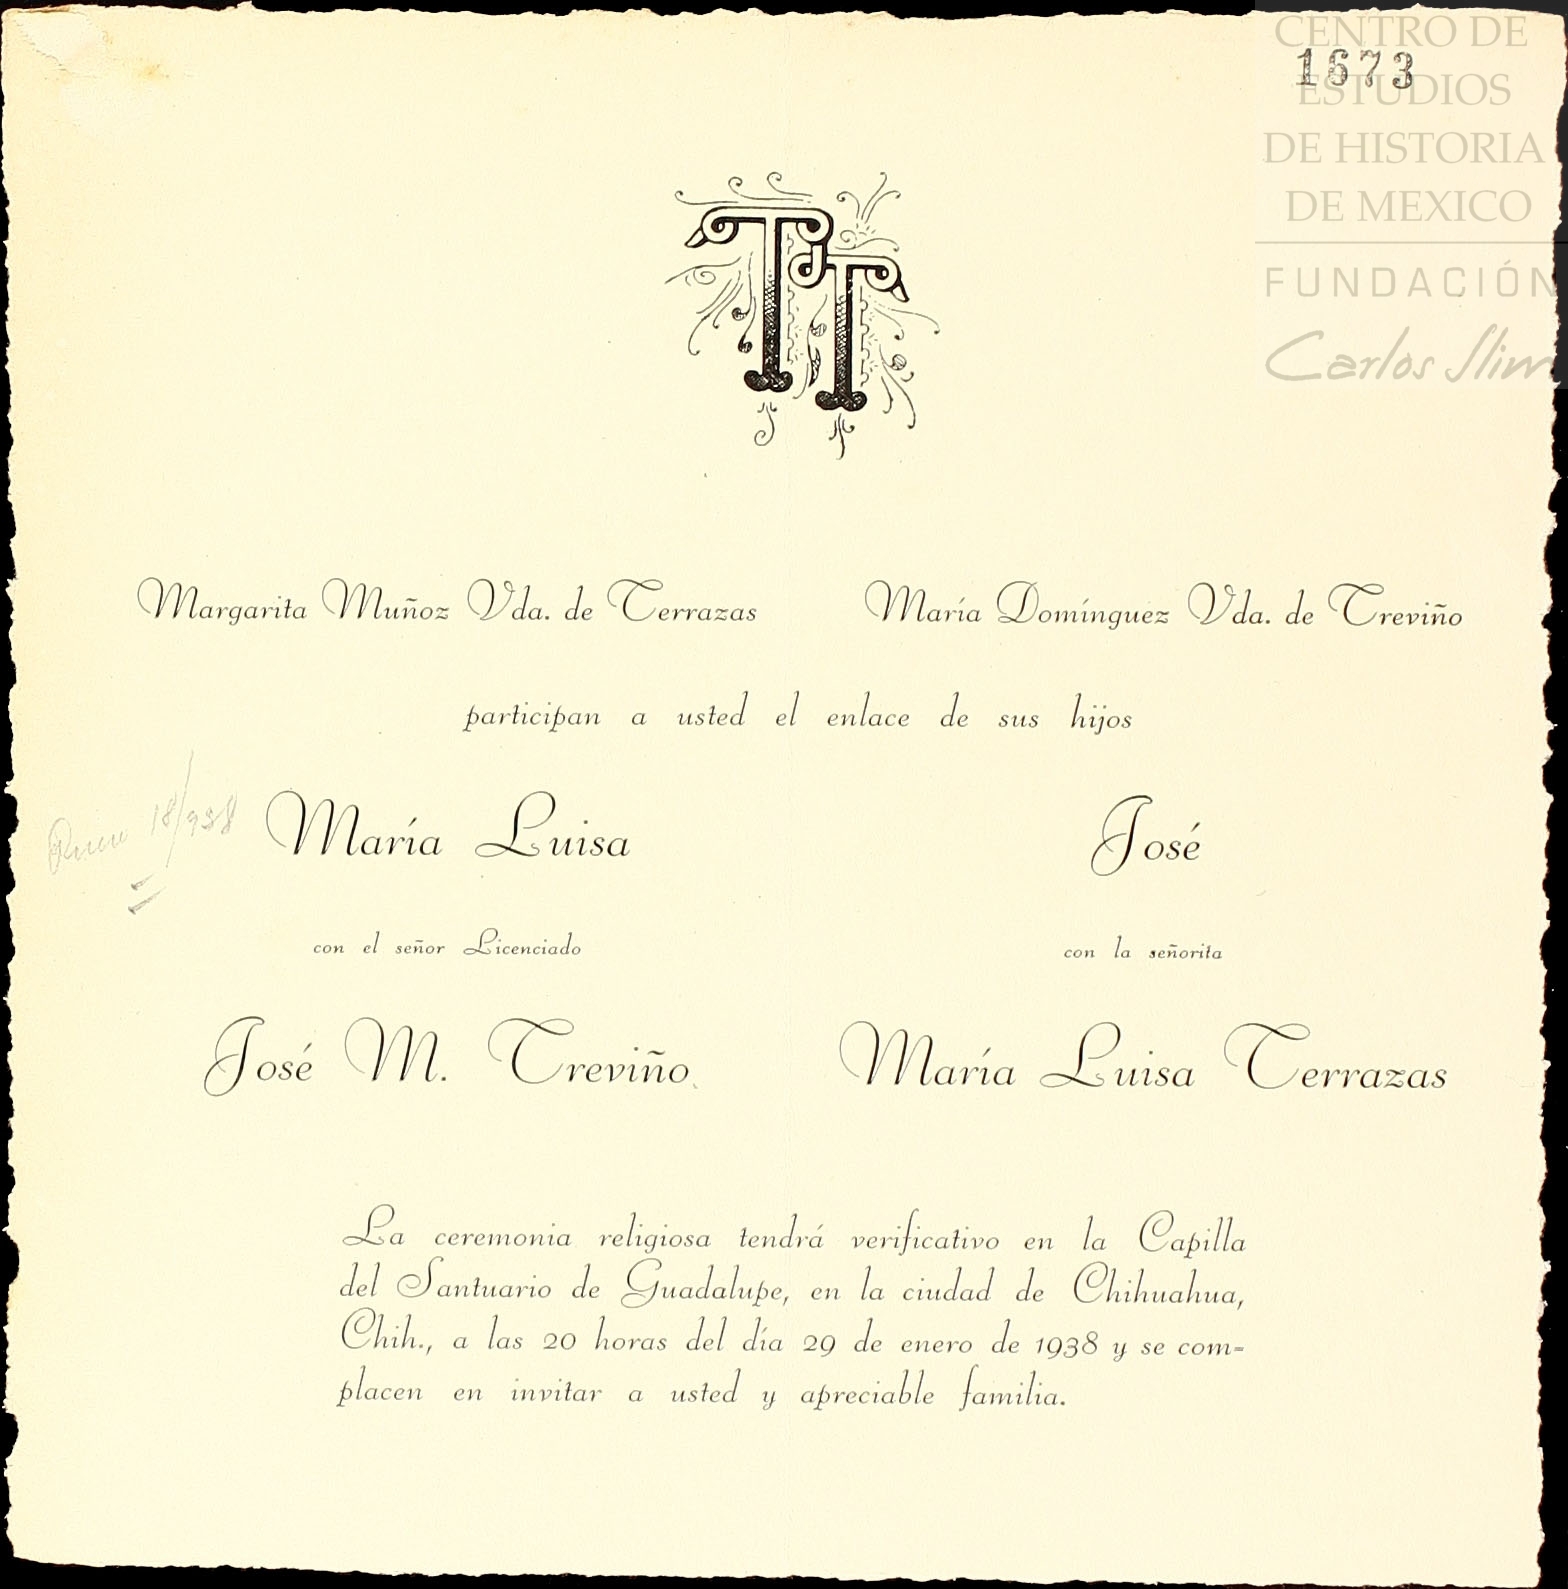 CENTRO DE
ESTUDIOS
DE HISTORIA
DE MEXICO
FUNDACIÓN
Carlos Slim
1673
TT
Margarita Muñoz Vda. de Terrazas
María Domínguez Vda. de Treviño
participan a usted el enlace de sus hijos
18/938
María Luisa
José
con el señor Licenciado
con la señorita
José M. Treviño
María Luisa Terrazas
La ceremonia religiosa tendrá verificativo en la Capilla
del Santuario de Guadalupe, en la ciudad de Chihuahua,
Chih., a las 20 horas del día 29 de enero de 1938 y se com=
placen en invitar a usted y apreciable familia.